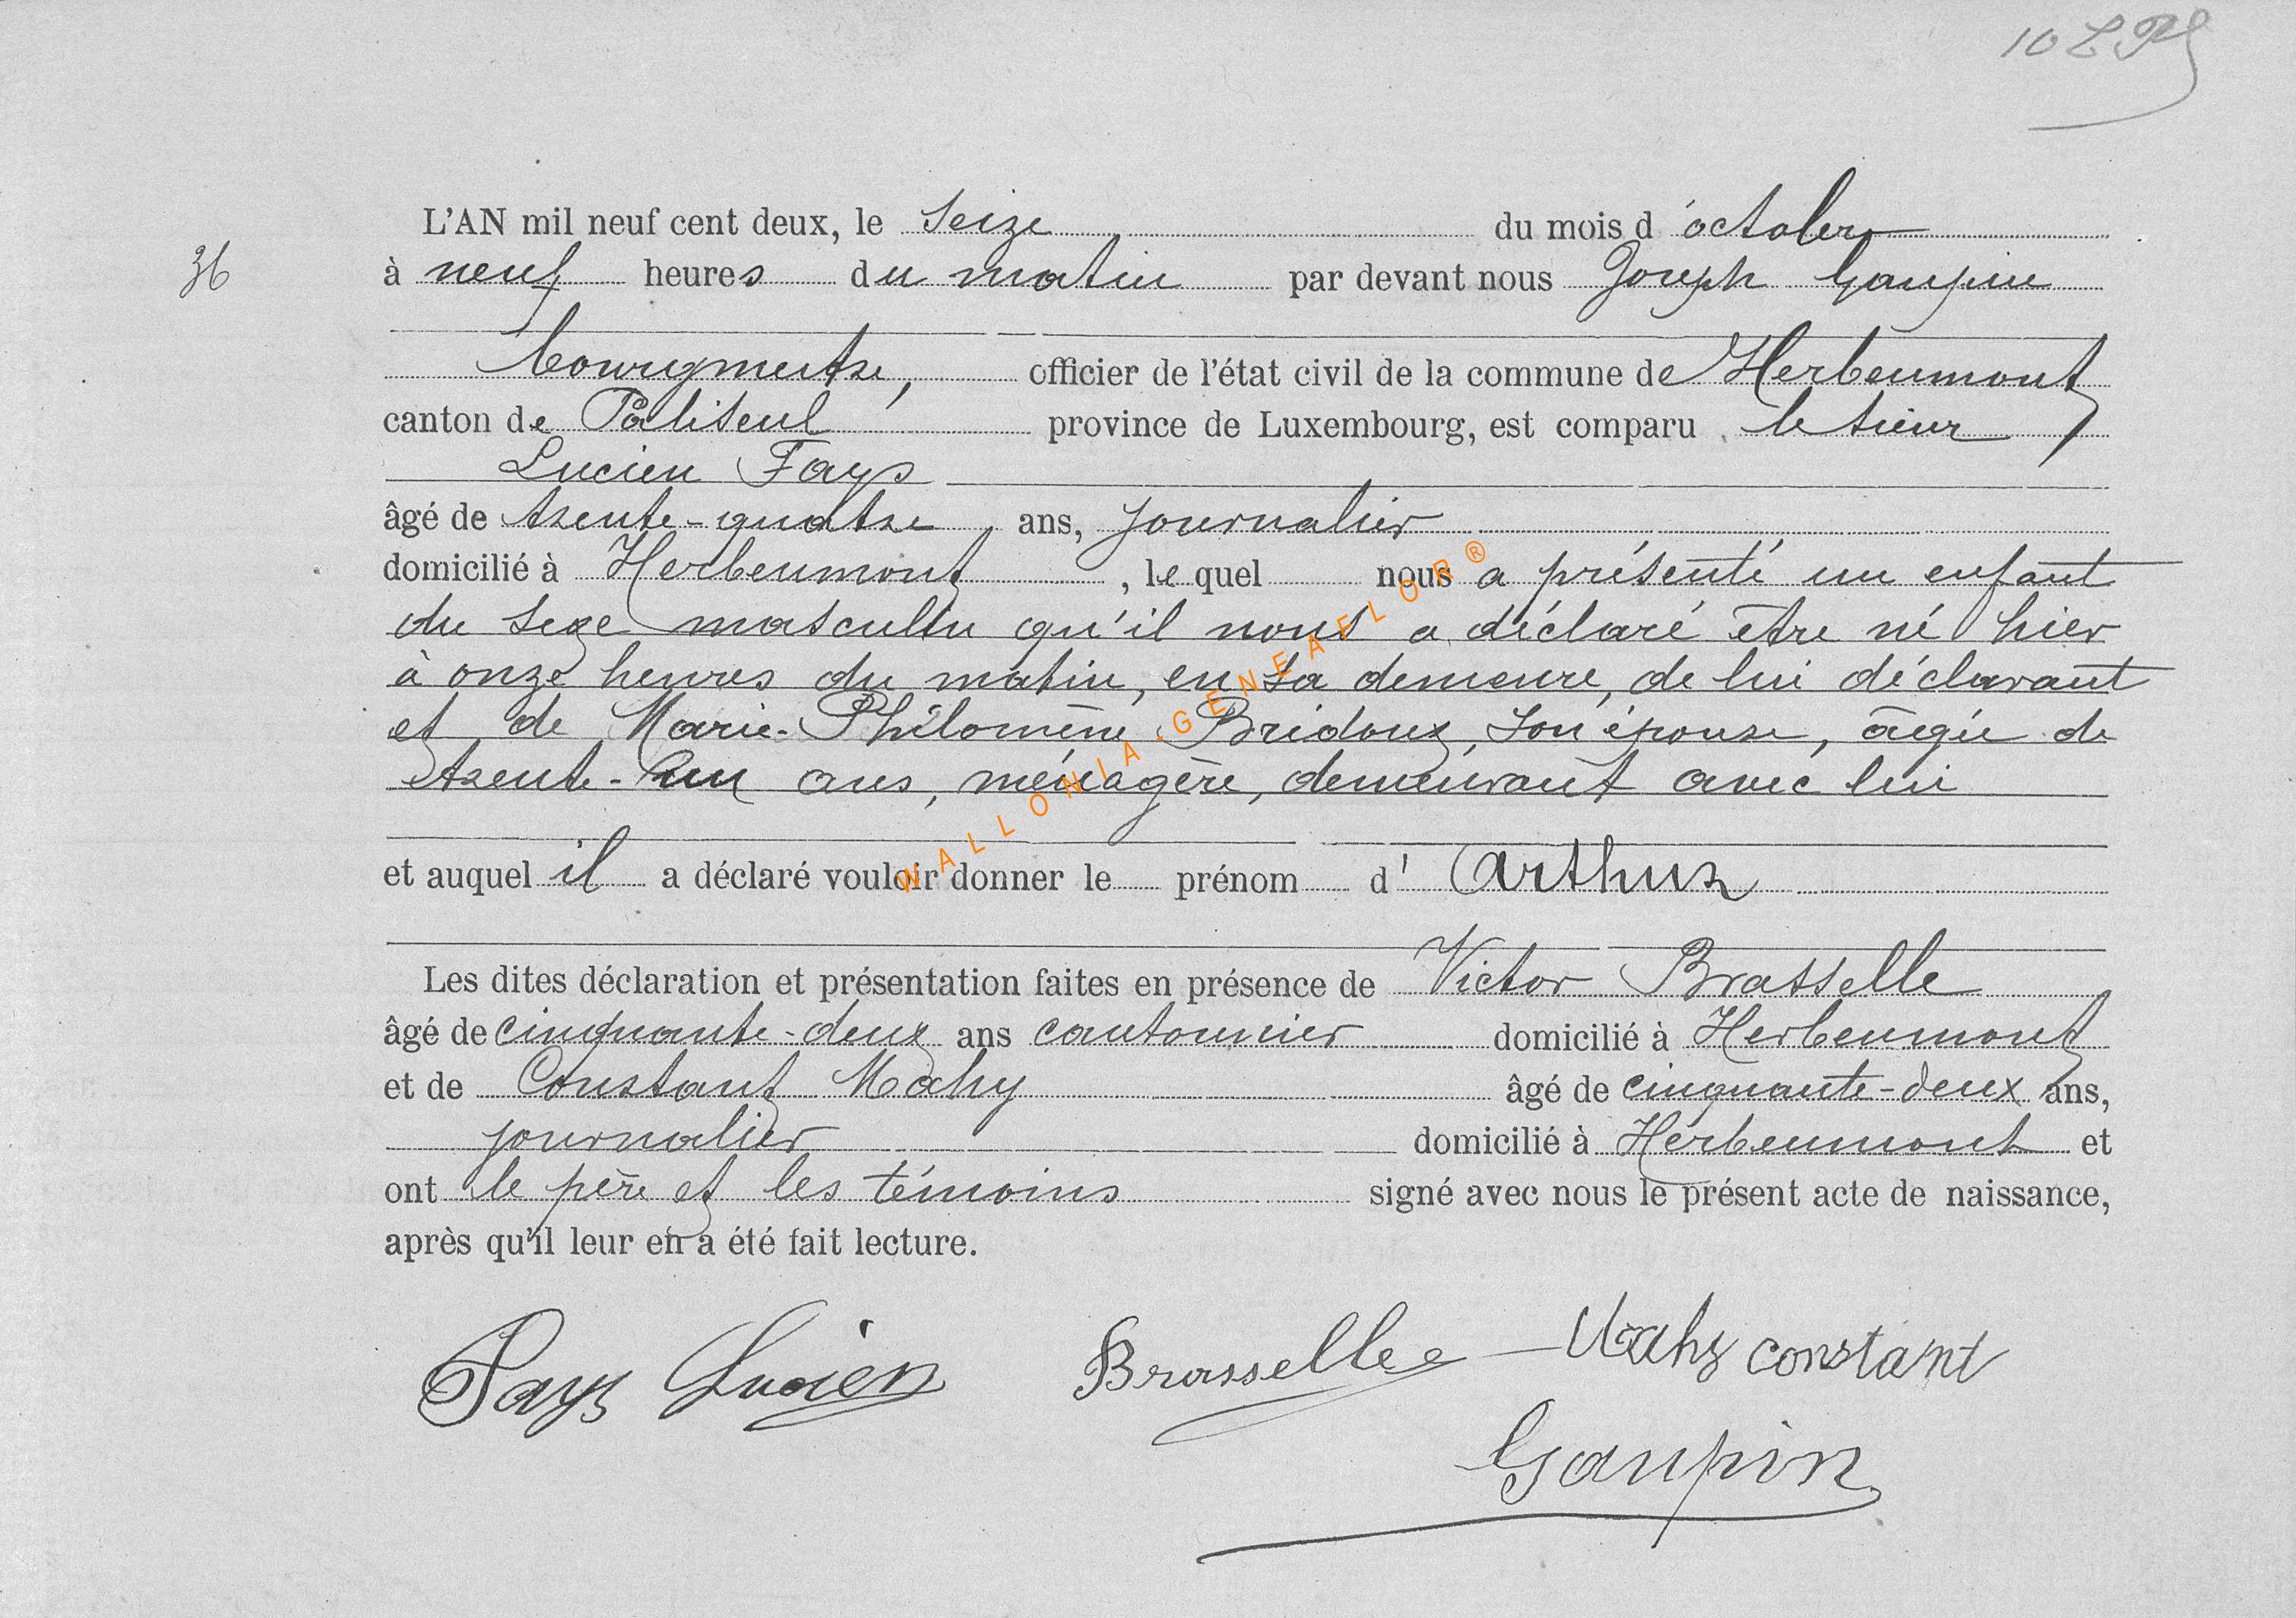 L'AN mil neuf cent deux, le seize du mois d'octobre
36
à neuf heures du matin par devant nous Joseph Gaupin
bourgmestre, officier de l'état civil de la commune de Herbeumont
canton de Paliseul province de Luxembourg, est comparu le sieur
Lucien Fays
âgé de trente-quatre ans, journalier
domicilié à Herbeumont, le quel nous a présenté un enfant
du sexe masculin qu'il nous a déclaré être né hier
à onze heures du matin, en sa demeure, de lui déclarant
et de Marie-Philomène Bridoux, son épouse, âgée de
trente-un ans, ménagère, demeurant avec lui
et auquel il a déclaré vouloir donner le prénom d'Arthur
Les dites déclaration et présentation faites en présence de Victor Brasselle
âgé de cinquante-deux ans cantonnier domicilié à Herbeumont
et de Constant Mahy âgé de cinquante-deux ans,
journalier domicilié à Herbeumont et
ont le père et les témoins signé avec nous le présent acte de naissance,
après qu'il leur en a été fait lecture.
Fays Lucien Brasselle Mahy constant
Gaupin
WALLONIA-GENEAELOR®